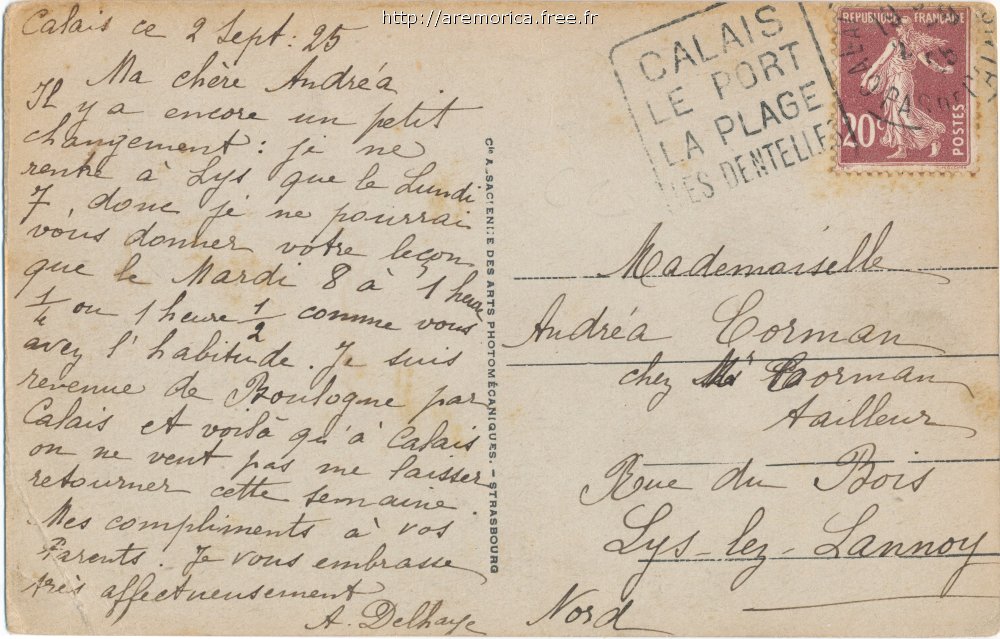 http://aremorica.free.fr
Calais ce 2 Sept. 25
Ma chère Andréa
Il y a encore un petit
changement : je ne
rentre à Lys que le Lundi
7, donc je ne pourrai
vous donner votre leçon
que le Mardi 8 à 1 heure
1/4 ou 1 heure 1/2 comme vous
avez l'habitude. Je suis
revenue de Boulogne par
Calais et voilà qu'à Calais
on ne veut pas me laisser
retourner cette semaine.
Mes compliments à vos
Parents. Je vous embrasse
très affectueusement
A. Delhaye
Cie ALSACIENNE DES ARTS PHOTOMÉCANIQUES. – STRASBOURG
CALAIS
LE PORT
LA PLAGE
LES DENTELLES
RÉPUBLIQUE FRANÇAISE
20c
POSTES
Mademoiselle
Andréa Corman
chez Mr Corman
tailleur
Rue du Bois
Lys-lez-Lannoy
Nord